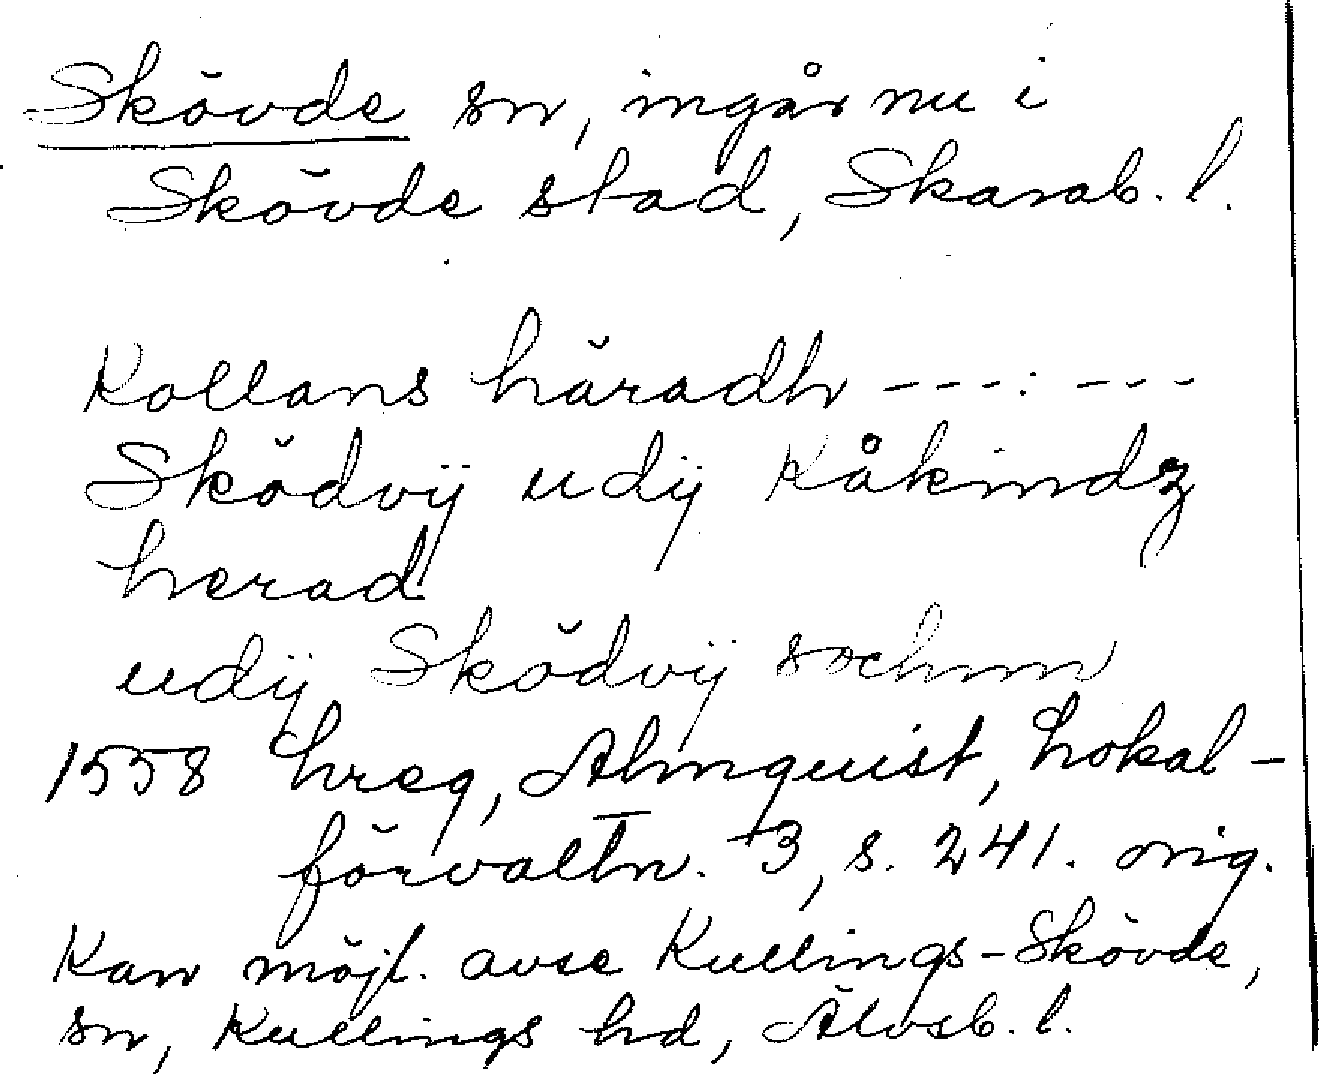 Skövde sn, ingår nu i
Skövde stad, Skarab. l.
Kollans häradh ---:---
Sködvij udij Kåkindz
herad
udij Sködvij sochnn
1558 hreg, Almquist, Lokal-
förvaltn. 3, s. 241. orig.
Kan möjl. avse Kullings-Skövde,
sn, Kullings hd, Älvsb. l.